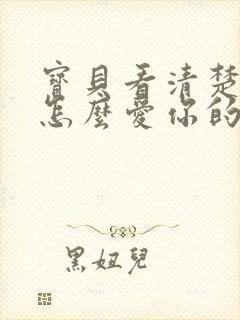 寶貝看清楚
怎麼愛你的
黑妞兒